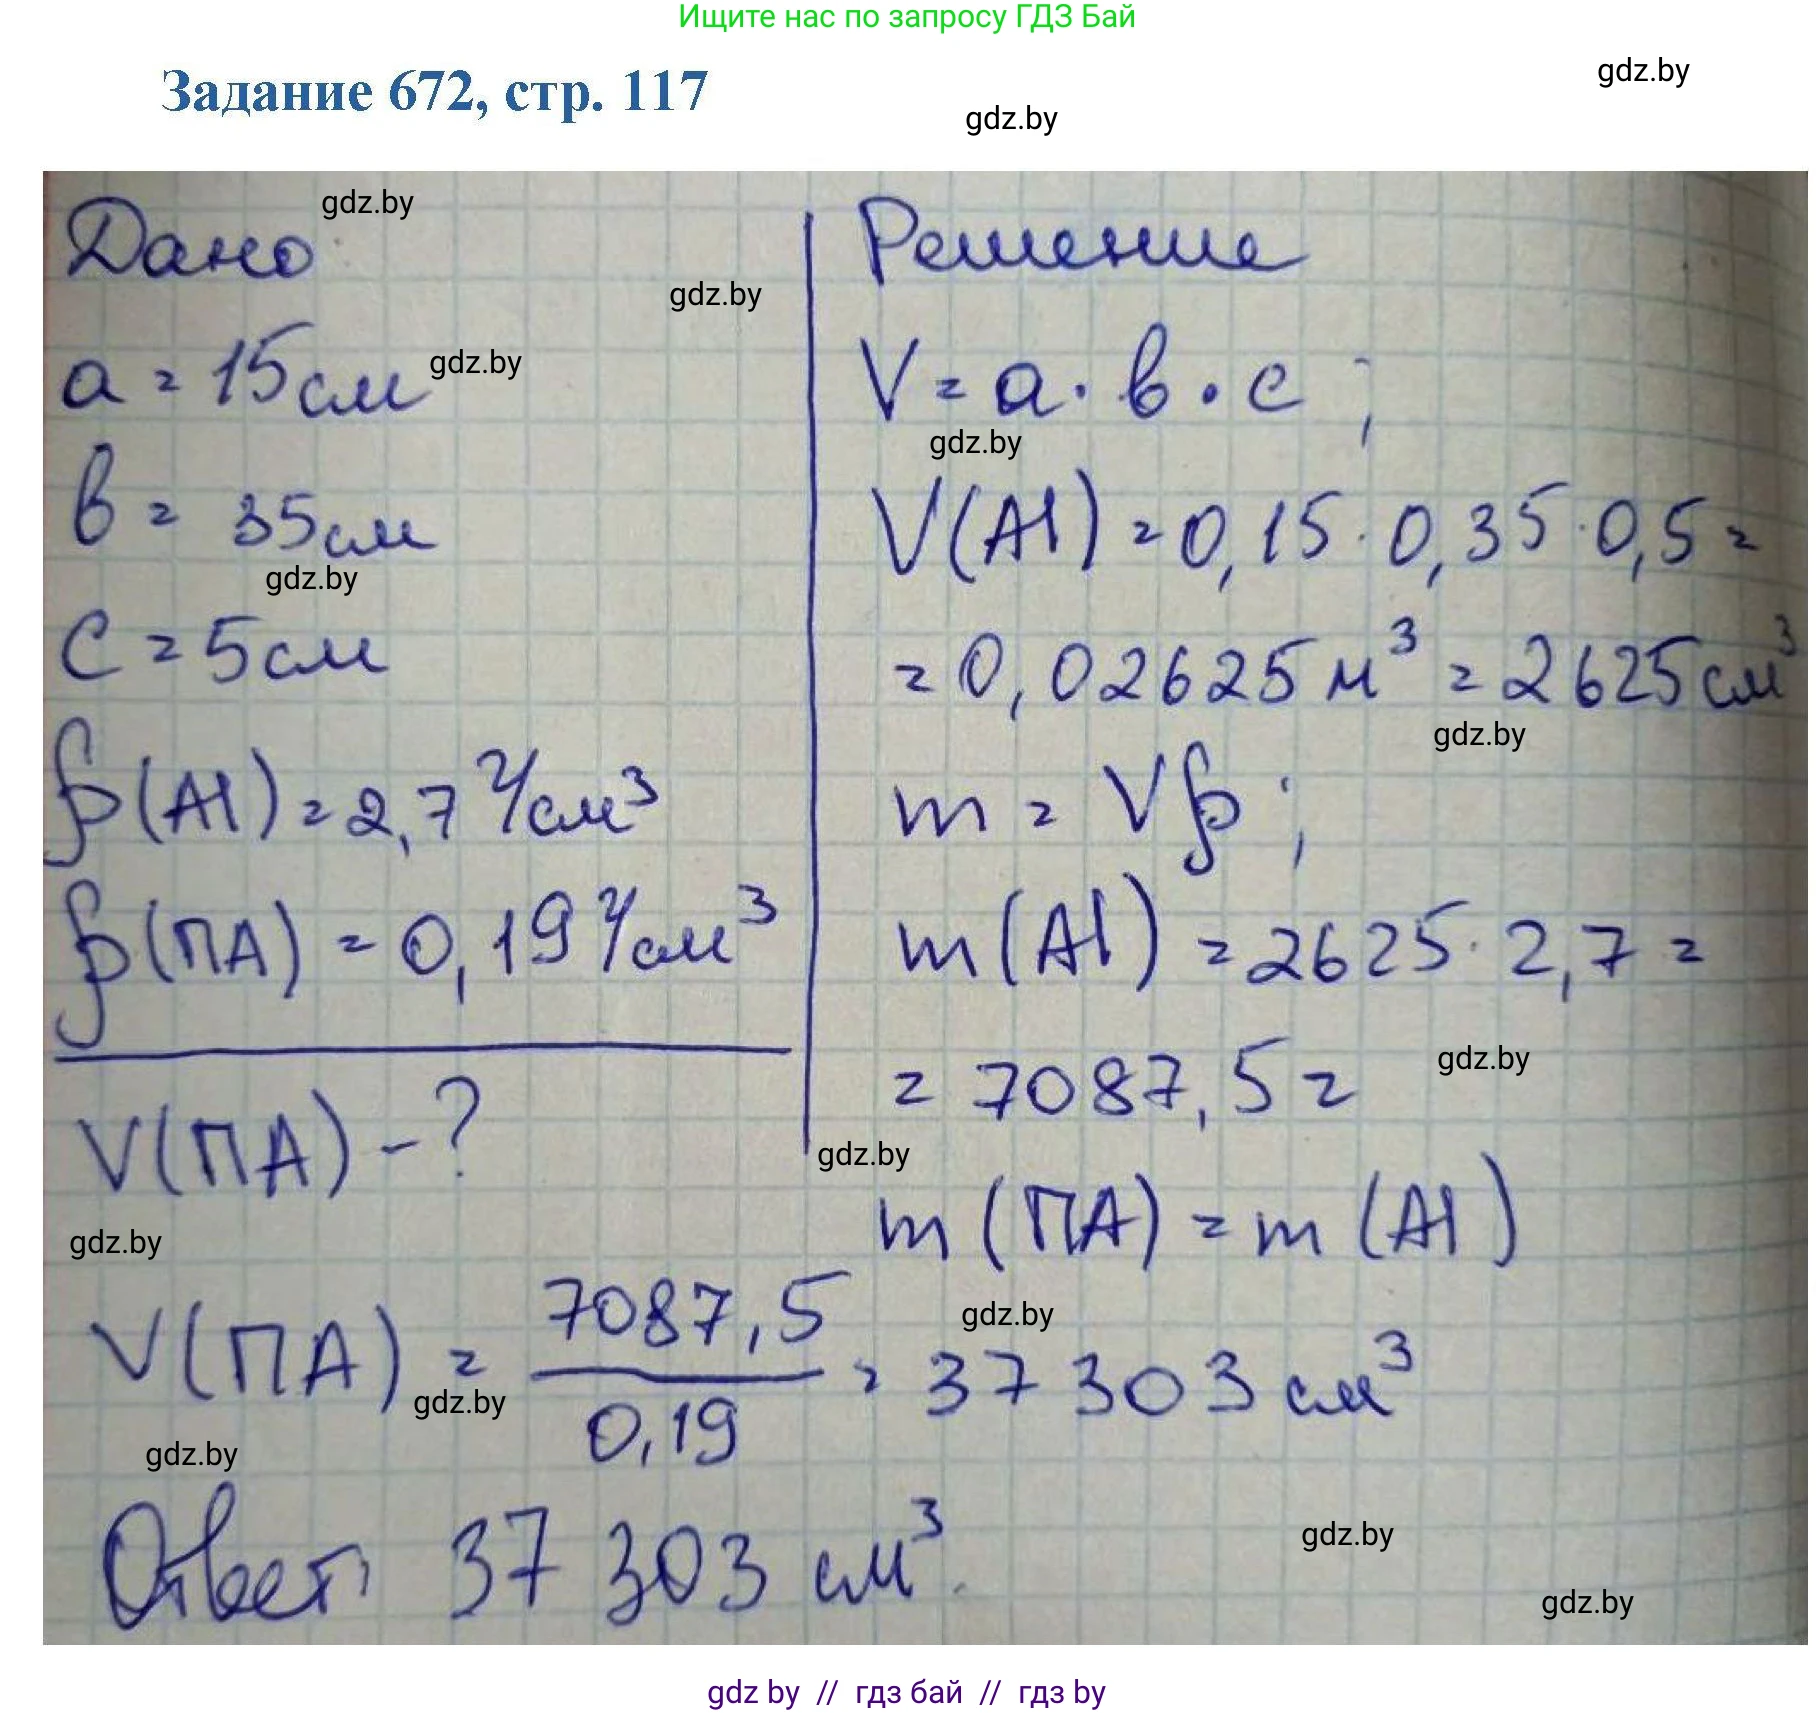 Ищите нас по запросу ГДЗ Бай
Задание 672, стр. 117
gdz.by
gdz.by
Дано
gdz.by
gdz.by
a = 15 см
gdz.by
в = 35 см
gdz.by
c = 5 см
ρ(Al) = 2,7 г/см³
ρ(ПА) = 0,19 г/см³
V(ПА) - ?
gdz.by
Решение
V = a · в · c ;
gdz.by
V(Al) = 0,15 · 0,35 · 0,5 =
= 0,02625 м³ = 2625 см³
gdz.by
m = Vρ ;
m(Al) = 2625 · 2,7 =
= 7087,5 г
gdz.by
gdz.by
m(ПА) = m(Al)
gdz.by
V(ПА) = 7087,5 / 0,19 = 37 303 см³
gdz.by
gdz.by
Ответ: 37 303 см³.
gdz.by
gdz.by
gdz by // гдз бай // гдз by